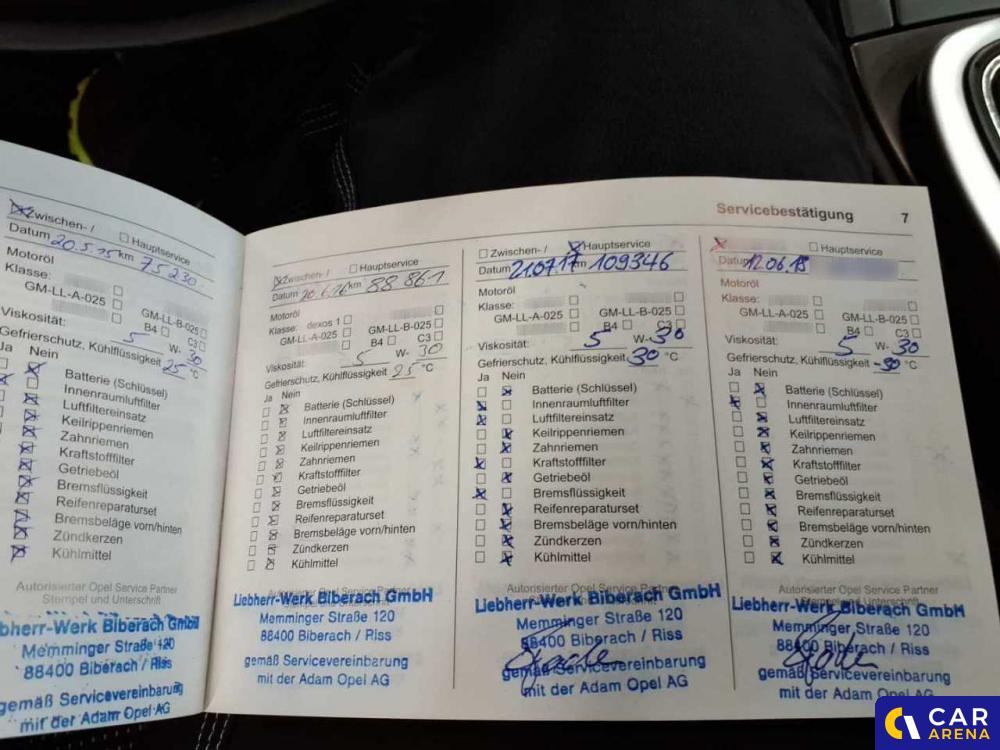 Servicebestätigung 7
Zwischen- / Hauptservice
Datum 20.5.15 km 75 230
Motoröl
Klasse:
GM-LL-A-025 GM-LL-B-025
B4 C3
Viskosität: 5 W- 30
Gefrierschutz, Kühlflüssigkeit 25 °C
Ja Nein
Batterie (Schlüssel)
Innenraumluftfilter
Luftfiltereinsatz
Keilrippenriemen
Zahnriemen
Kraftstofffilter
Getriebeöl
Bremsflüssigkeit
Reifenreparaturset
Bremsbeläge vorn/hinten
Zündkerzen
Kühlmittel
Autorisierter Opel Service Partner
Stempel und Unterschrift
bherr-Werk Biberach GmbH
Memminger Straße 120
88400 Biberach / Riss
gemäß Servicevereinbarung
mit der Adam Opel AG
Zwischen- / Hauptservice
Datum 20.6.16 km 88 861
Motoröl
Klasse: dexos 1
GM-LL-A-025 GM-LL-B-025
B4 C3
Viskosität: 5 W- 30
Gefrierschutz, Kühlflüssigkeit 25 °C
Ja Nein
Batterie (Schlüssel)
Innenraumluftfilter
Luftfiltereinsatz
Keilrippenriemen
Zahnriemen
Kraftstofffilter
Getriebeöl
Bremsflüssigkeit
Reifenreparaturset
Bremsbeläge vorn/hinten
Zündkerzen
Kühlmittel
Autorisierter Opel Service Partner
Liebherr-Werk Biberach GmbH
Memminger Straße 120
88400 Biberach / Riss
gemäß Servicevereinbarung
mit der Adam Opel AG
Zwischen- / Hauptservice
Datum 210717 km 109346
Motoröl
Klasse:
GM-LL-A-025 GM-LL-B-025
B4 C3
Viskosität: 5 W- 30
Gefrierschutz, Kühlflüssigkeit 30 °C
Ja Nein
Batterie (Schlüssel)
Innenraumluftfilter
Luftfiltereinsatz
Keilrippenriemen
Zahnriemen
Kraftstofffilter
Getriebeöl
Bremsflüssigkeit
Reifenreparaturset
Bremsbeläge vorn/hinten
Zündkerzen
Kühlmittel
Autorisierter Opel Service Partner
Liebherr-Werk Biberach GmbH
Memminger Straße 120
88400 Biberach / Riss
gemäß Servicevereinbarung
mit der Adam Opel AG
Hauptservice
Datum 12.06.18
Motoröl
Klasse:
GM-LL-A-025 GM-LL-B-025
B4 C3
Viskosität: 5 W- 30
Gefrierschutz, Kühlflüssigkeit -30 °C
Ja Nein
Batterie (Schlüssel)
Innenraumluftfilter
Luftfiltereinsatz
Keilrippenriemen
Zahnriemen
Kraftstofffilter
Getriebeöl
Bremsflüssigkeit
Reifenreparaturset
Bremsbeläge vorn/hinten
Zündkerzen
Kühlmittel
Autorisierter Opel Service Partner
Stempel und Unterschrift
Liebherr-Werk Biberach GmbH
Memminger Straße 120
88400 Biberach / Riss
gemäß Servicevereinbarung
mit der Adam Opel AG
CAR
ARENA